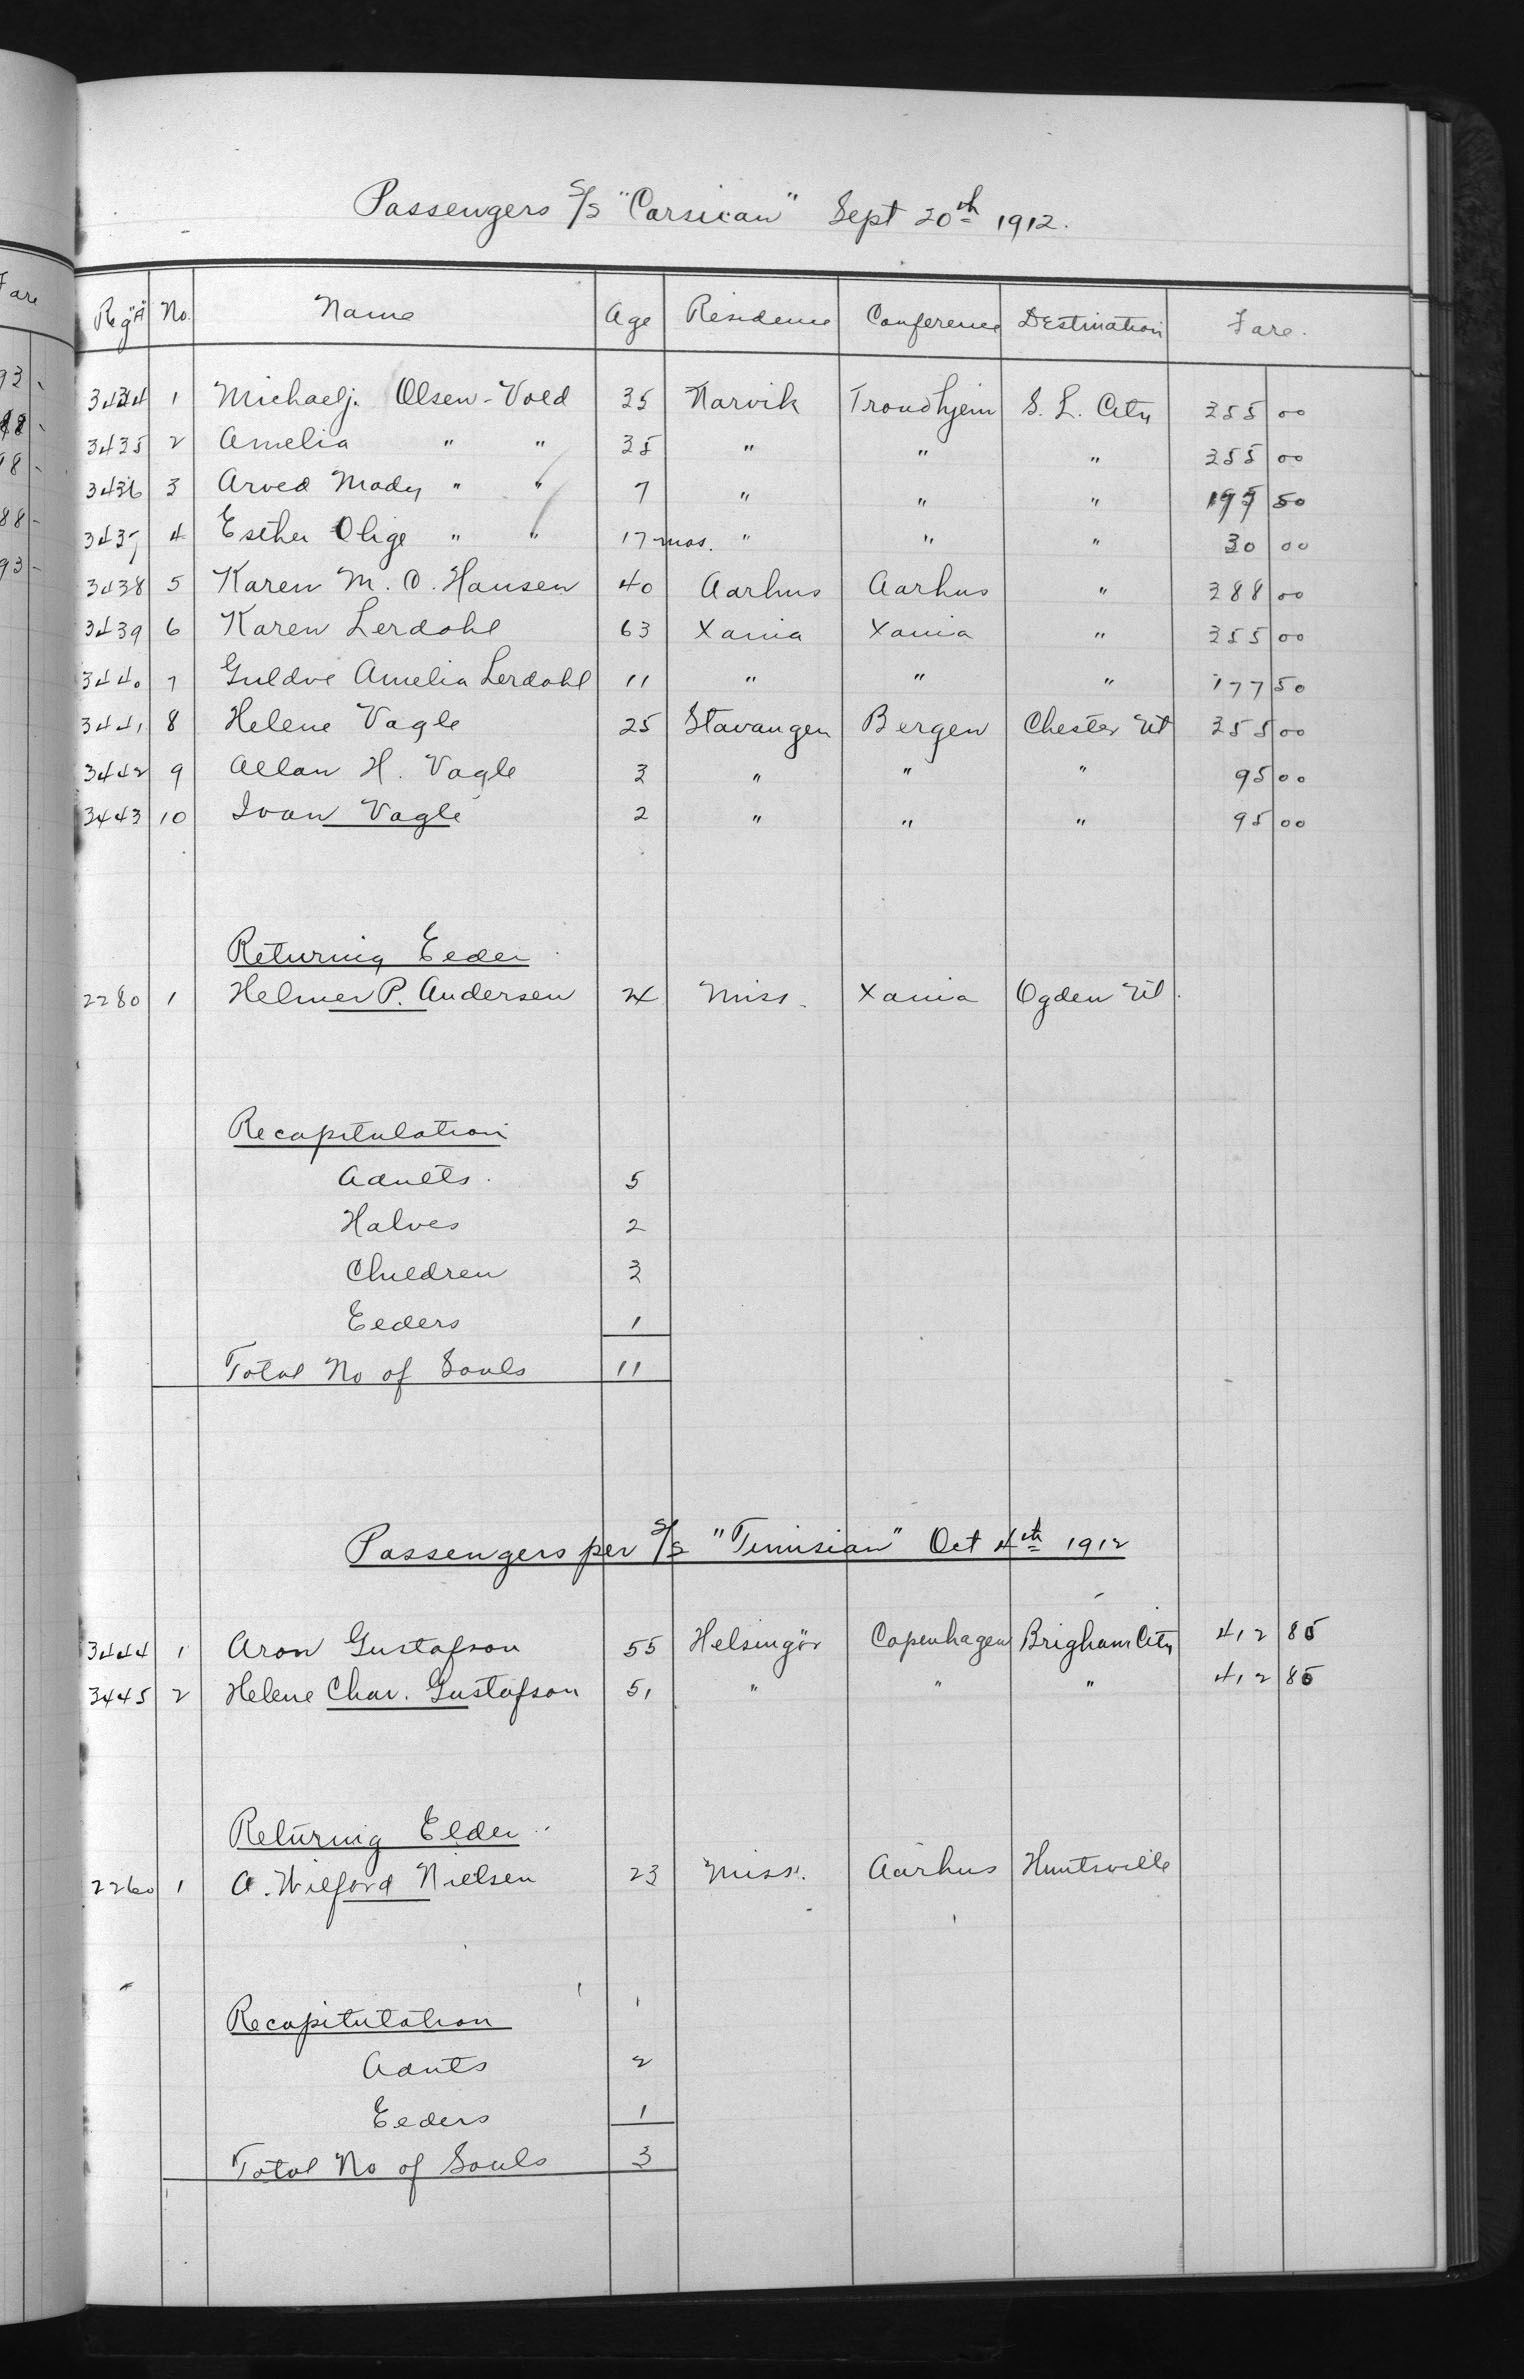 Passengers S/S "Corsican" Sept 20th 1912.
Fare
Reg "A" No. Name Age Residence Conference Destination Fare.
3434 1 Michaelj. Olsen-Vold 35 Narvik Trondhjem S. L. City 355 00
3435 2 Amelia " " 35 " " " 355 00
3436 3 Arved Mady " " 7 " " " 50
3437 4 Esther Olige " " 17 mos. " " " 30 00
3438 5 Karen M. O. Hansen 40 Aarhus Aarhus " 388 00
3439 6 Karen Lerdahl 63 Xania Xania " 355 00
3440 7 Guldve Amelia Lerdahl 11 " " " 177 50
3441 8 Helene Vagle 25 Stavanger Bergen Chester Ut 355 00
3442 9 Allan H. Vagle 3 " " " 95 00
3443 10 Ivan Vagle 2 " " " 95 00
Returning Elder
2280 1 Helmer P. Andersen 24 Miss. Xania Ogden Ut.
Recapitulation
Adults. 5
Halves 2
Children 3
Elders 1
Total No of Souls 11
Passengers per S/S "Tunisian" Oct 4th 1912
3444 1 Aron Gustafson 55 Helsingör Copenhagen Brigham City 412 85
3445 2 Helene Char. Gustafson 51 " " " 412 85
Returning Elder
2260 1 A. Wilford Nielsen 23 Miss. Aarhus Huntsville
Recapitulation
Adults 2
Elders 1
Total No of Souls 3